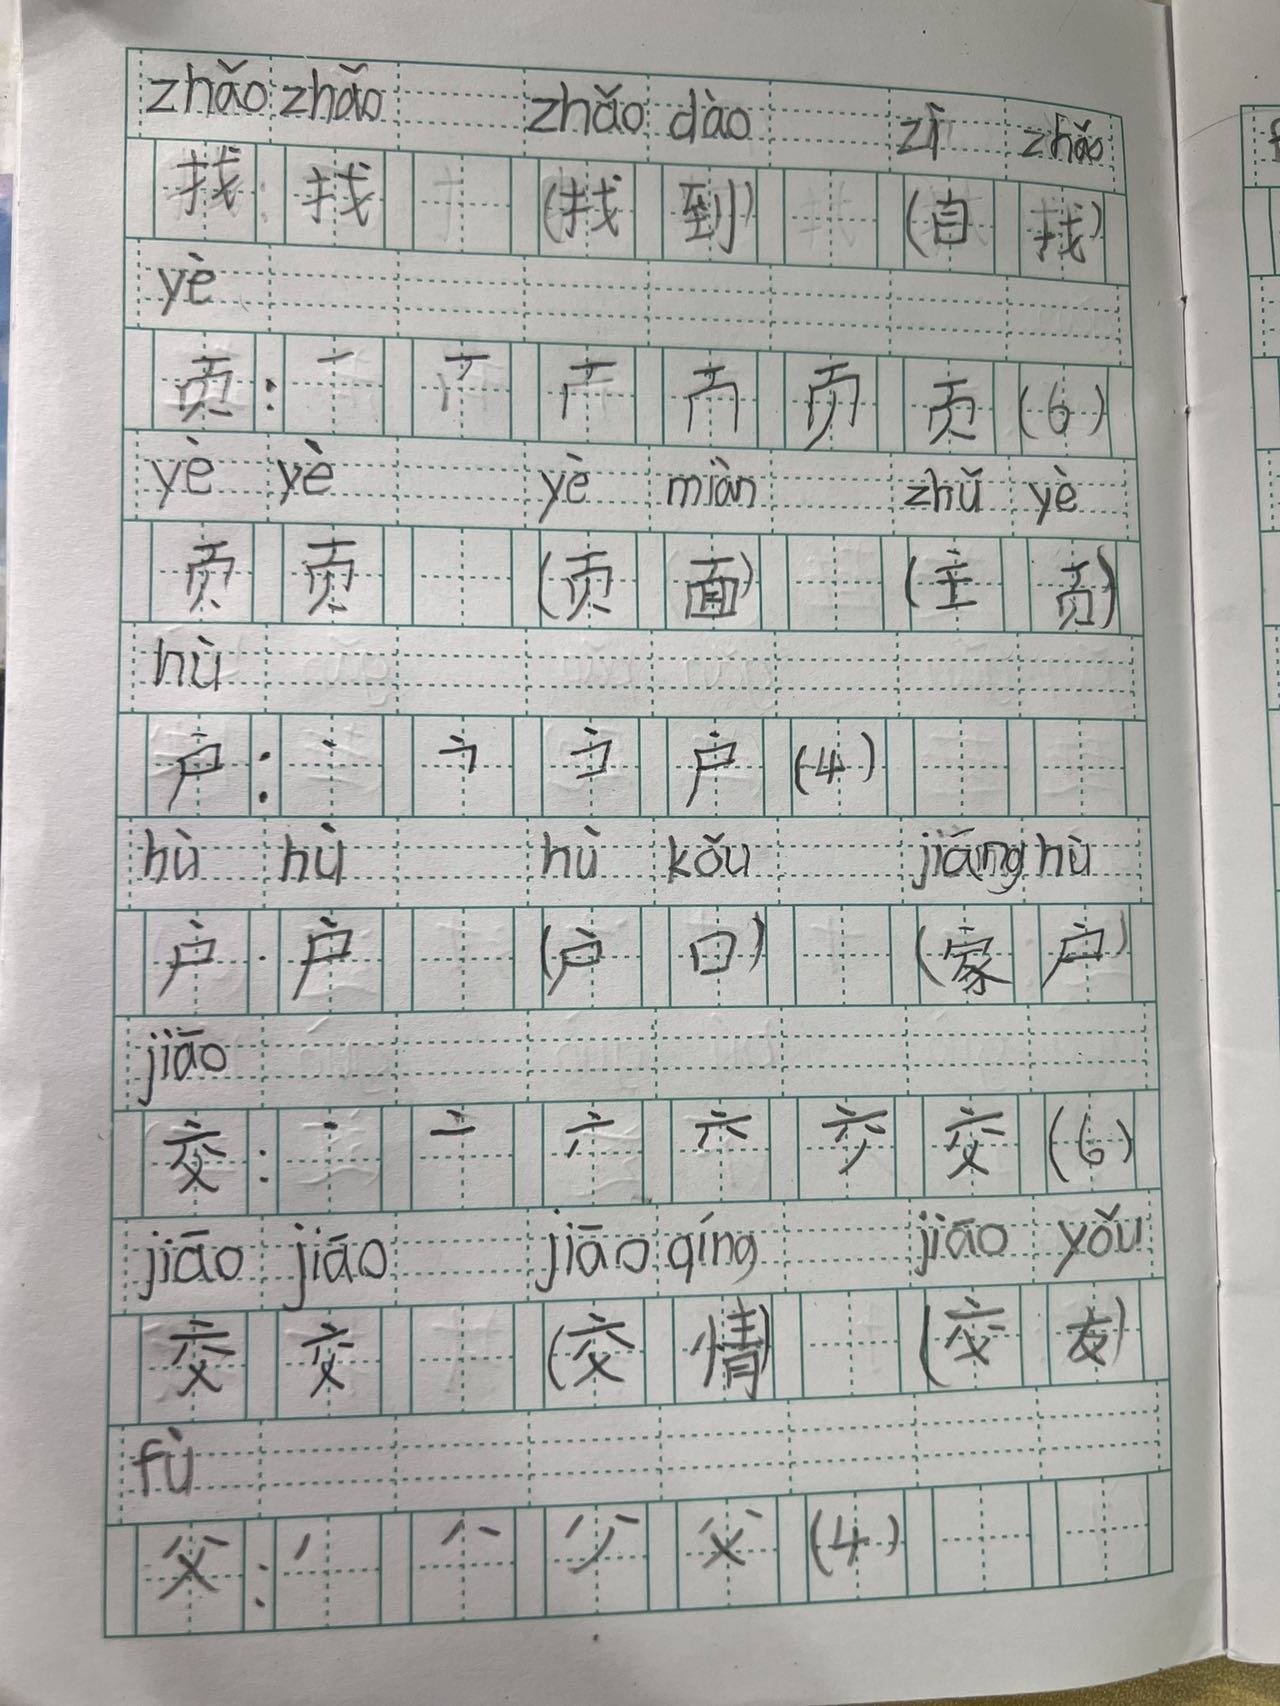 zhǎo zhǎo zhǎo dào zì zhǎo
找 找 (找 到) (自 找)
yè
页: 一 丆 页 (6)
yè yè yè miàn zhǔ yè
页 页 (页 面) (主 页)
hù
户: 丶 户 (4)
hù hù hù kǒu jiāng hù
户 户 (户 口) (家 户)
jiāo
交: 丶 亠 六 交 (6)
jiāo jiāo jiāo qíng jiāo yǒu
交 交 (交 情) (交 友)
fù
父: 丿 八 父 (4)